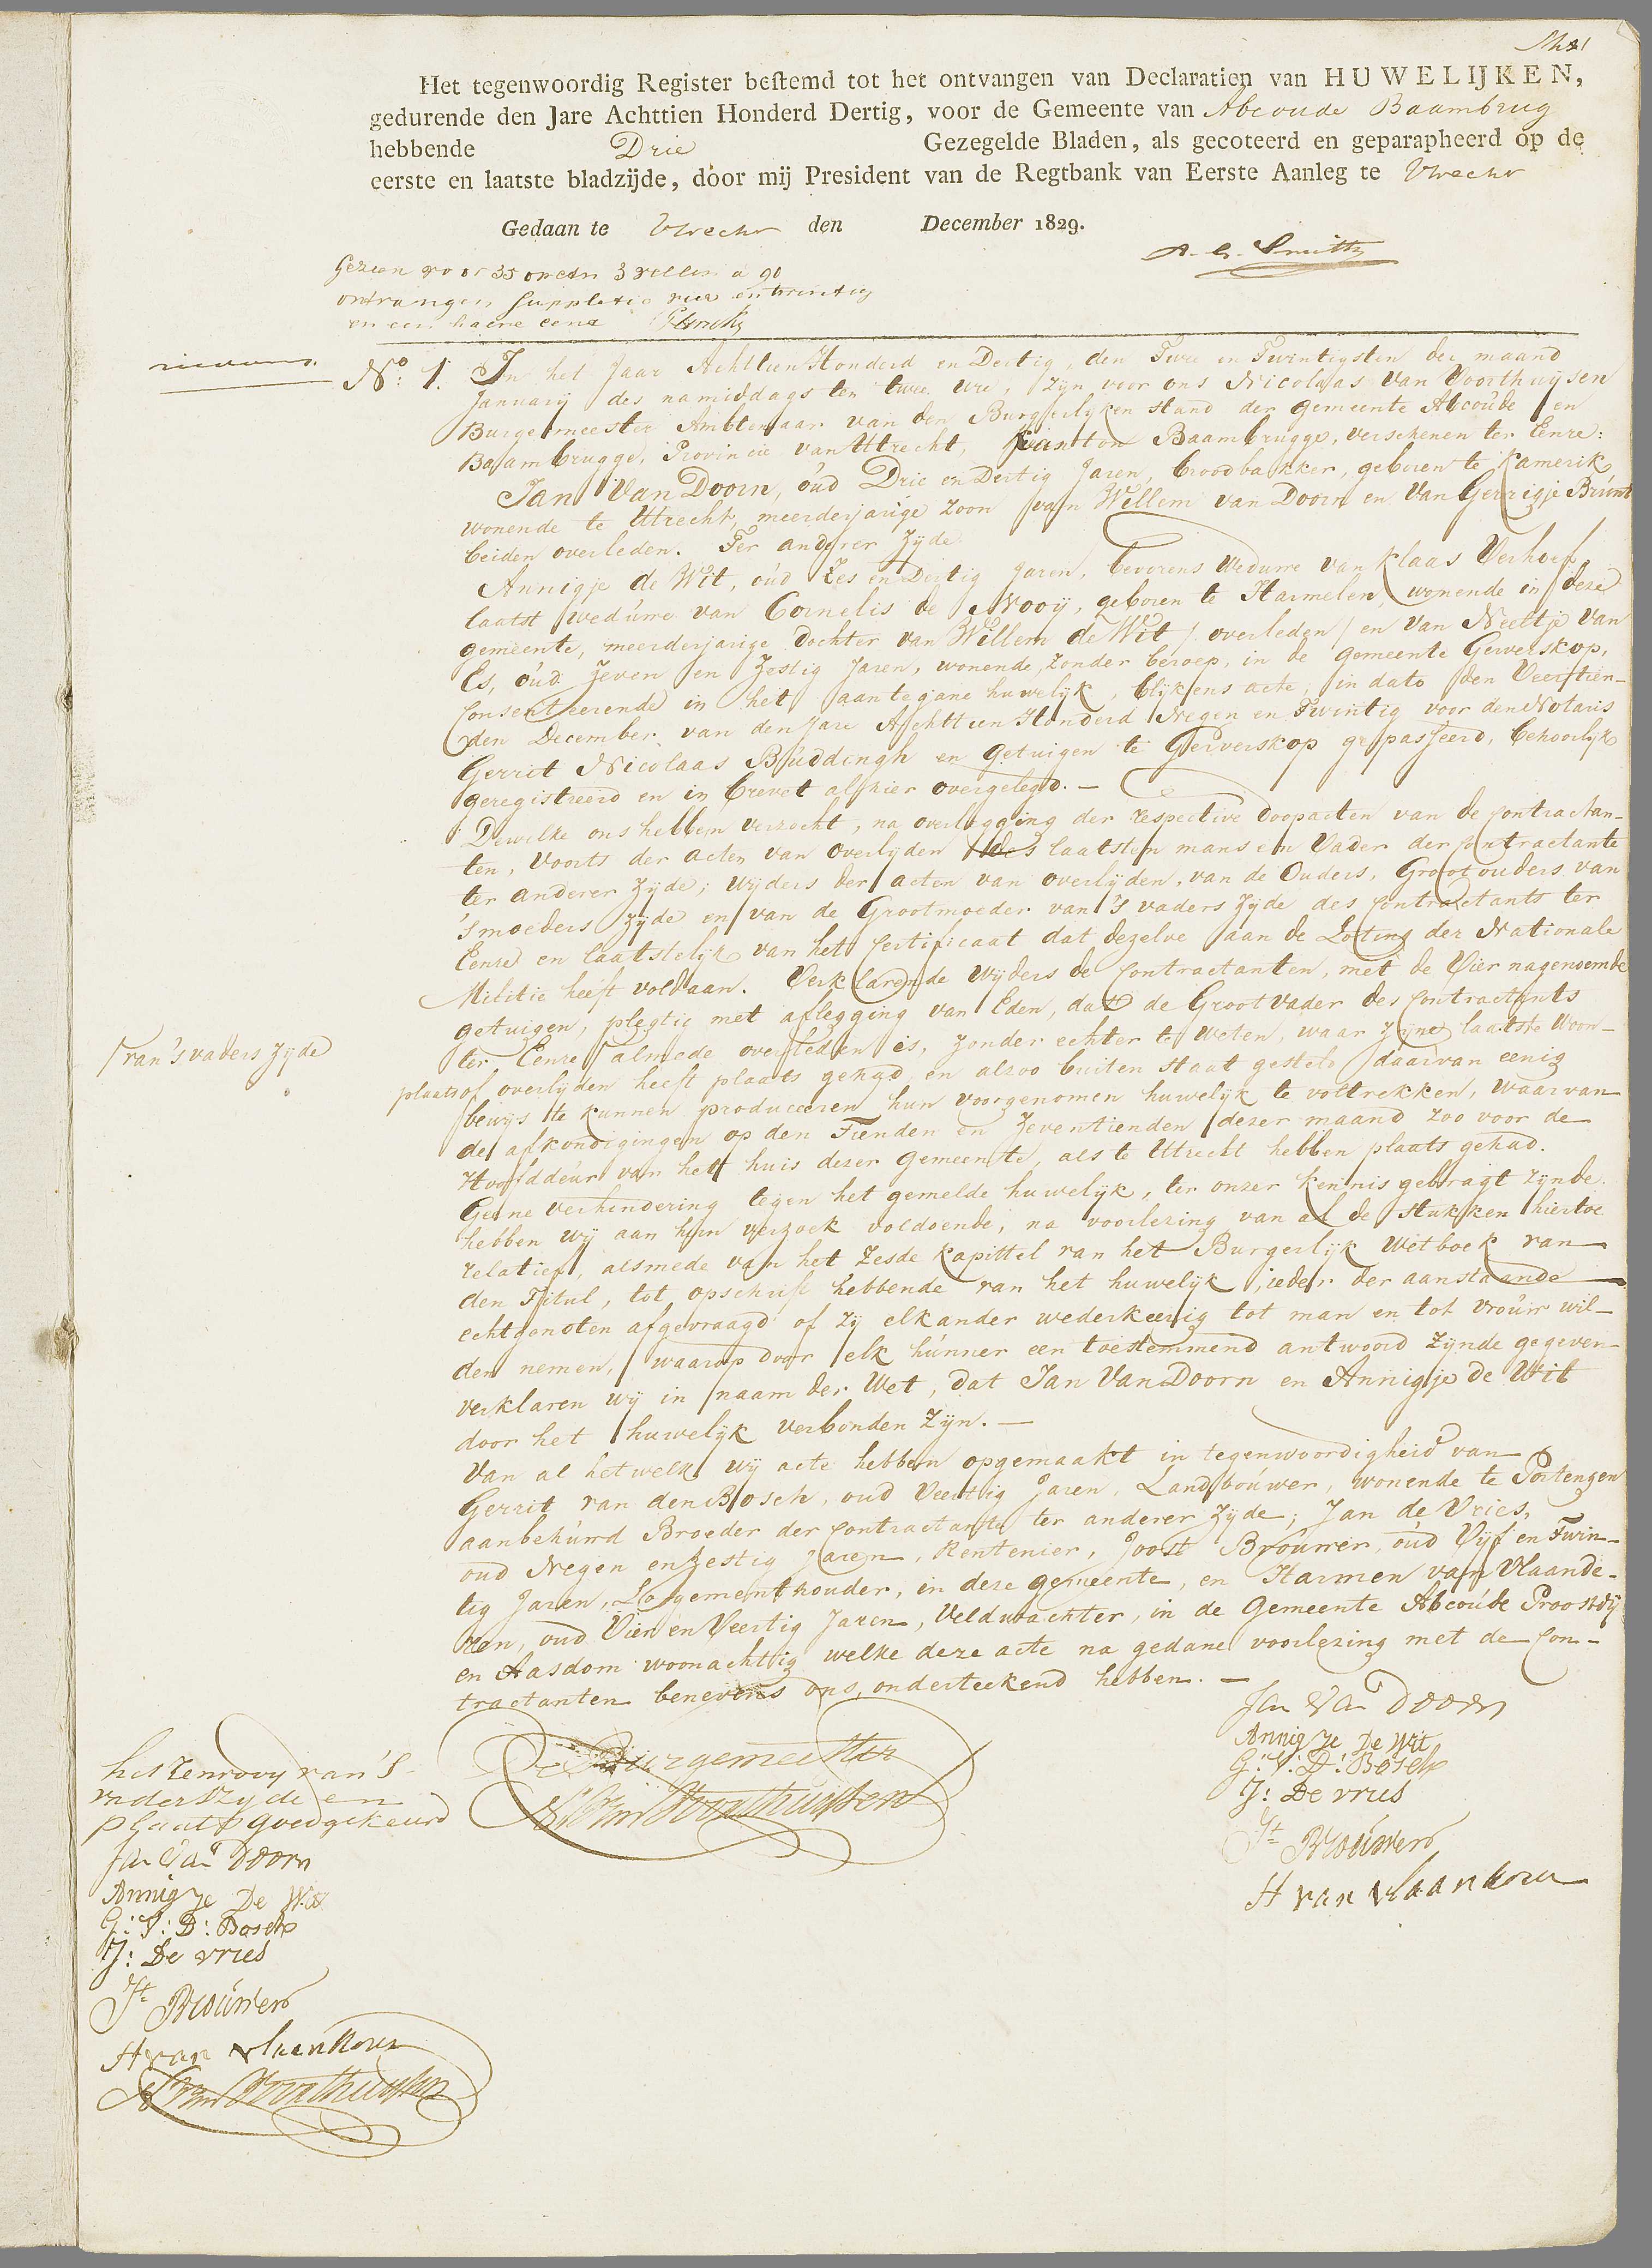 Het tegenwoordig Register bestemd tot het ontvangen van Declaratien van HUWELIJKEN,
gedurende den Jare Achttien Honderd Dertig, voor de Gemeente van Abcoude Baambrug
hebbende Drie Gezegelde Bladen, als gecoteerd en geparapheerd op de
eerste en laatste bladzijde, door mij President van de Regtbank van Eerste Aanleg te Utrecht
Gedaan te Utrecht den December 1829.
Gezien voor 35 3 a 90
ontvangen suppletie vier en twintig
en een halve cent
No: 1. In het Jaar Achttien Honderd en Dertig, den Twee en Twintigsten der maand
Januarij des namiddags ten twee ure, zijn voor ons Nicolaas Van Voorthuijsen
Burgemeester Ambtenaar van den Burgerlyken stand der gemeente Abcoude en
Baambrugge, Provincie van Utrecht, Kanton Baambrugge, verschenen ter Eenre:
Jan Van Doorn, oud Drie en Dertig Jaren, broodbakker, geboren te Kamerik
wonende te Utrecht, meerderjarige zoon van Willem van Doorn en Van Gerrigje Brunt
beiden overleden. Ter anderer Zyde
Annigje de Wit, oud Zes en Dertig Jaren, bevorens Weduwe van Klaas Verhoef,
laatst weduwe van Cornelis de Nrooij, geboren te Harmelen, wonende in deze
gemeente, meerderjarige dochter van Willem de Wit / overleden / en Van Neeltje Van
Es, oud Zeven en Zestig Jaren, wonende, zonder beroep, in de gemeente Gerverskop,
Consenteerende in het aantegane huwelijk, blijkens acte, in dato den Veertien-
den December van den Jare Achttien Honderd Negen en Twintig voor den Notaris
Gerrit Nicolaas Buddingh en Getuigen te Gerverskop gepasseerd, behoorlyk
geregistreerd en in brevet alhier overgelegd. —
Dewelke ons hebben verzocht, na overlegging der respective doopacten van de contractan-
ten, voorts der acten van overlyden des laatsten mans en Vader der contractante
ter anderer Zyde; wyders der acten van overlijden, van de Ouders, Grootouders van
's moeders zyde en van de Grootmoeder van 's vaders zyde des Contractants ter
Eenre en laatstelijk van het certificaat dat dezelve aan de Loting der Nationale
Militie heeft voldaan. Verklarende wijders de Contractanten, met de Vier nagenoemde
getuigen, plegtig met aflegging van Eden, dat de Grootvader des Contractants
/van 's vaders zyde
ter Eenre almede overleden is, zonder echter te weten, waar zyne laatste Woon-
plaats of overlijden heeft plaats gehad en alzoo buiten staat gesteld daarvan eenig
bewijs te kunnen produceeren hun voorgenomen huwelyk te voltrekken, waarvan
de afkondigingen op den Tienden en Zeventienden dezer maand zoo voor de
Hoofddeur van het huis dezer gemeente, als te Utrecht hebben plaats gehad.
Geene verhindering tegen het gemelde huwelyk, ter onzer kennis gebragt zynde
hebben wy aan hun verzoek voldoende, na voorlezing van al de stukken hiertoe
relatief, alsmede van het Zesde Kapittel van het Burgerlijk Wetboek van
den Titul, tot opschrift hebbende van het huwelyk, ieder der aanstaande
echtgenoten afgevraagd of zy elkander wederkeerig tot man en tot vrouw wil-
den nemen, waarop door elk hunner een toestemmend antwoord zynde gegeven
verklaren wy in naam der Wet, dat Jan Van Doorn en Annigje de Wit
door het huwelyk verbonden zyn. —
Van al hetwelk wy acte hebben opgemaakt in tegenwoordigheid van
Gerrit van den Bosch, oud Veertig Jaren, Landbouwer, wonende te Portengen
aanbehuwd Broeder der Contractante ter anderer zyde; Jan de Vries,
oud Negen en zestig Jaren, Rentenier, Joost Brouwer, oud Vijf en Twin-
tig Jaren, Logementhouder, in deze gemeente, en Harmen van Vlaande-
ren, oud Vier en Veertig Jaren, Veldwachter, in de Gemeente Abcoude Proostdy
en Aasdom woonachtig welke deze acte na gedane voorlezing met de Con-
tractanten benevens ons, onderteekend hebben. —
De Burgemeester
N Van Voorthuijsen
Jan Van Doorn
Annigje De Wit
G: V: D: Bosch
J: De vries
Jt Brouwer
H van vlaanderen
van 'S
vaders Zyde en
plaats goedgekeurd
Jan Van Doorn
Annigje De Wit
G: V: D: Bosch
J: De vries
Jt Brouwer
H van vlaanderen
N Van Voorthuijsen